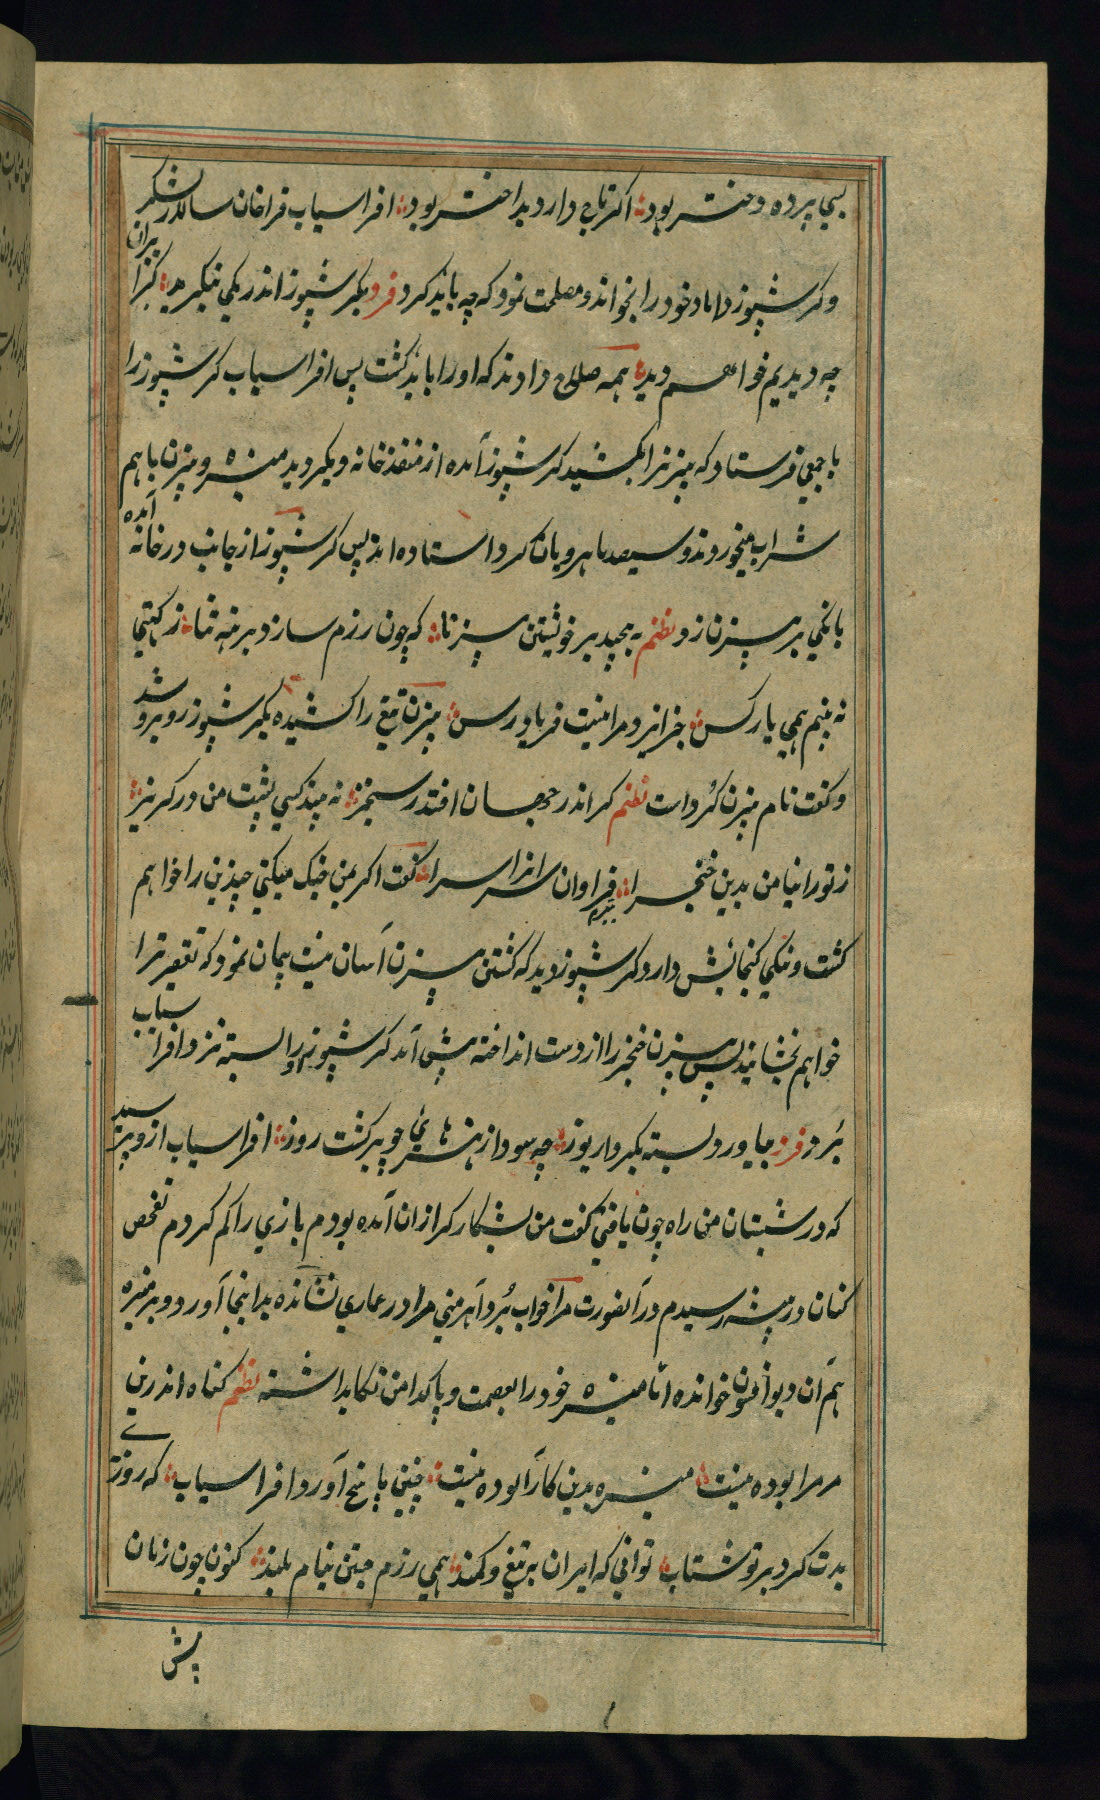 پس پرده دختر بود اگر تاج دارد بد اختر بود افراسیاب قراخان سالار لشکر
و کرشیوز داماد خود را بخواند و مصلحت نمود که چه باید کرد فرد بکرشیوز اندر یکی بنکرید کز ایران
چه دیدیم خواهم دید همه صلاح دادند که او را باید کشت پس افراسیاب کرشیوز را
با جمعی فرستاد که بیژن را بکشید کرشیوز آمده از منفذ خانه دیکر دید منیژه و بیژن باهم
شراب میخورند و سیصد ماهرویان کرد استاده اند پس کرشیوز از جانب در خانه آمده
بانکی بر بیژن زد نظم به پیچید بر خویشتن بیژنا که چون رزم سازد برهنه تنا ز کیتی
نه بینم همی یار کس جز ایزد مرا نیست فریاد رس بیژن تیغ را کشیده بکرشیوز روبرو شد
و کفت نام بیژن کرد است نظم کر اندر جهان افتد رستخیز نه بیند کسی پشت من در کریز
ز تورانیان من بدین خنجرا ببرم فراوان سرانرا سرا کفت اکر بمن جنک میکنی چندین را خواهم
کشت و نیکی کنجائش دارد کرشیوز دید که کشتن بیژن آسان نیست پیمان نمود که تقصیر ترا
خواهم بخشانید پس بیژن خنجر را از دست انداخته پیش آمد کرشیوز او را بسته نزد افراسیاب
برد فرد بیاورد بسته بکردار یوز چه سود از هنرهای چو برکشت روز افراسیاب ازو پرسید
که در شبستان من راه چون یافتی کفت من بشکار کرازان آمده بودم بازی را کم کردم تفحص
کنان در بیشه رسیدم در آنصورت مرا خواب برد آهرمنی مرا در عماری نشانده بدا ینجا آورد و بر منیژه
هم آن دیو افسون خوانده اما منیژه خود را بعصمت و پاکدامن نکاهداشته نظم کناه اندرین
مر مرا بوده نیست منیژه بدین کار آلوده نیست چنین پاسخ آورد افراسیاب که روزت
بدت کرد بر تو شتاب توانی که ایران بر تیغ و کمند همی رزم جستن بنام بلند کنون چون زنان
پیش